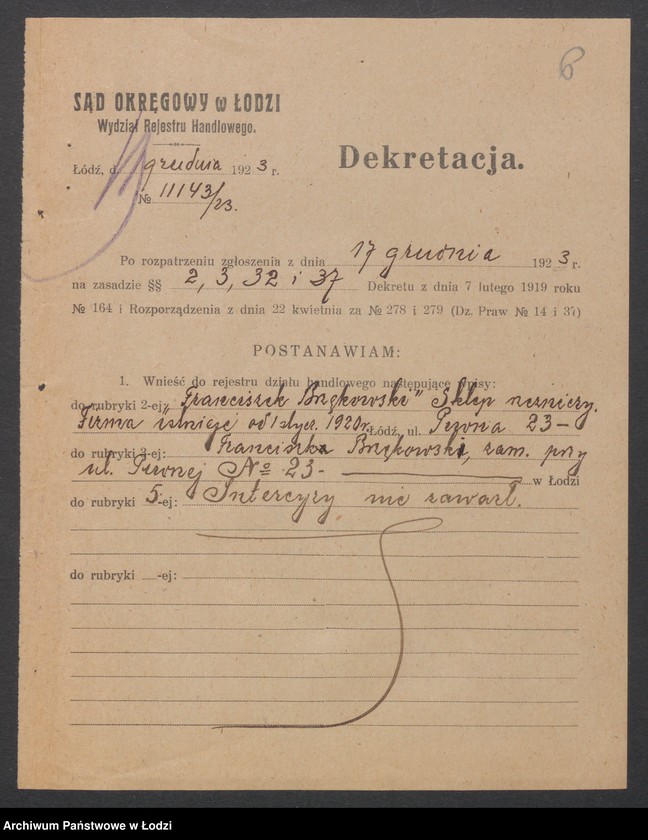 6
SĄD OKRĘGOWY w ŁODZI
Wydział Rejestru Handlowego.
Dekretacja.
Łódź, d. grudnia 1923 r.
№ 11143/23.
Po rozpatrzeniu zgłoszenia z dnia 17 grudnia 1923 r.
na zasadzie §§ 2, 3, 32 i 37 Dekretu z dnia 7 lutego 1919 roku
№ 164 i Rozporządzenia z dnia 22 kwietnia za № 278 i 279 (Dz. Praw № 14 i 37)
POSTANAWIAM:
1. Wnieść do rejestru działu handlowego następujące wpisy:
do rubryki 2-ej: „Franciszek Brękowski" Sklep rzeźniczy.
Firma istnieje od 1 stycz. 1920 r. Łódź, ul. 23 —
do rubryki 3-ej: Franciszek Brękowski, zam. przy
ul. № 23 - w Łodzi
do rubryki 5-ej: Intercyzy nie zawarł.
do rubryki -ej:
Archiwum Państwowe w Łodzi